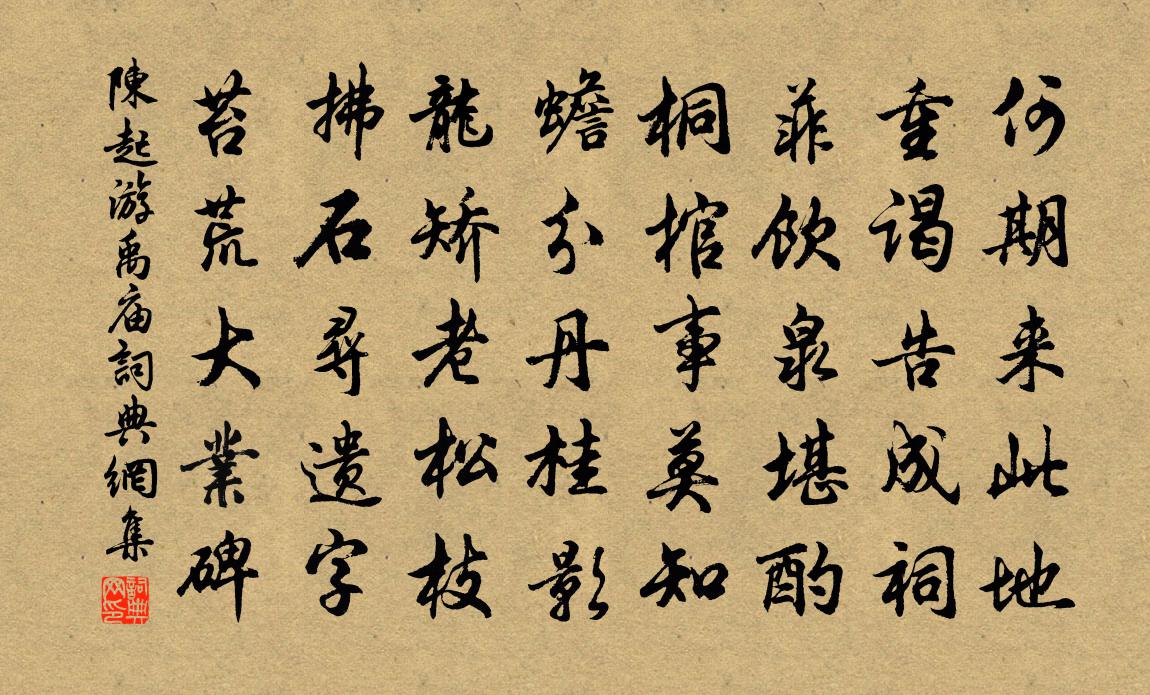 何期来此地
重谒告成祠
菲飲泉堪酌
桐棺事莫知
蟾分丹桂影
龍矫老松枝
拂石尋遗字
苔荒大業碑
陳起游禹庙詞典網集
詞典网印